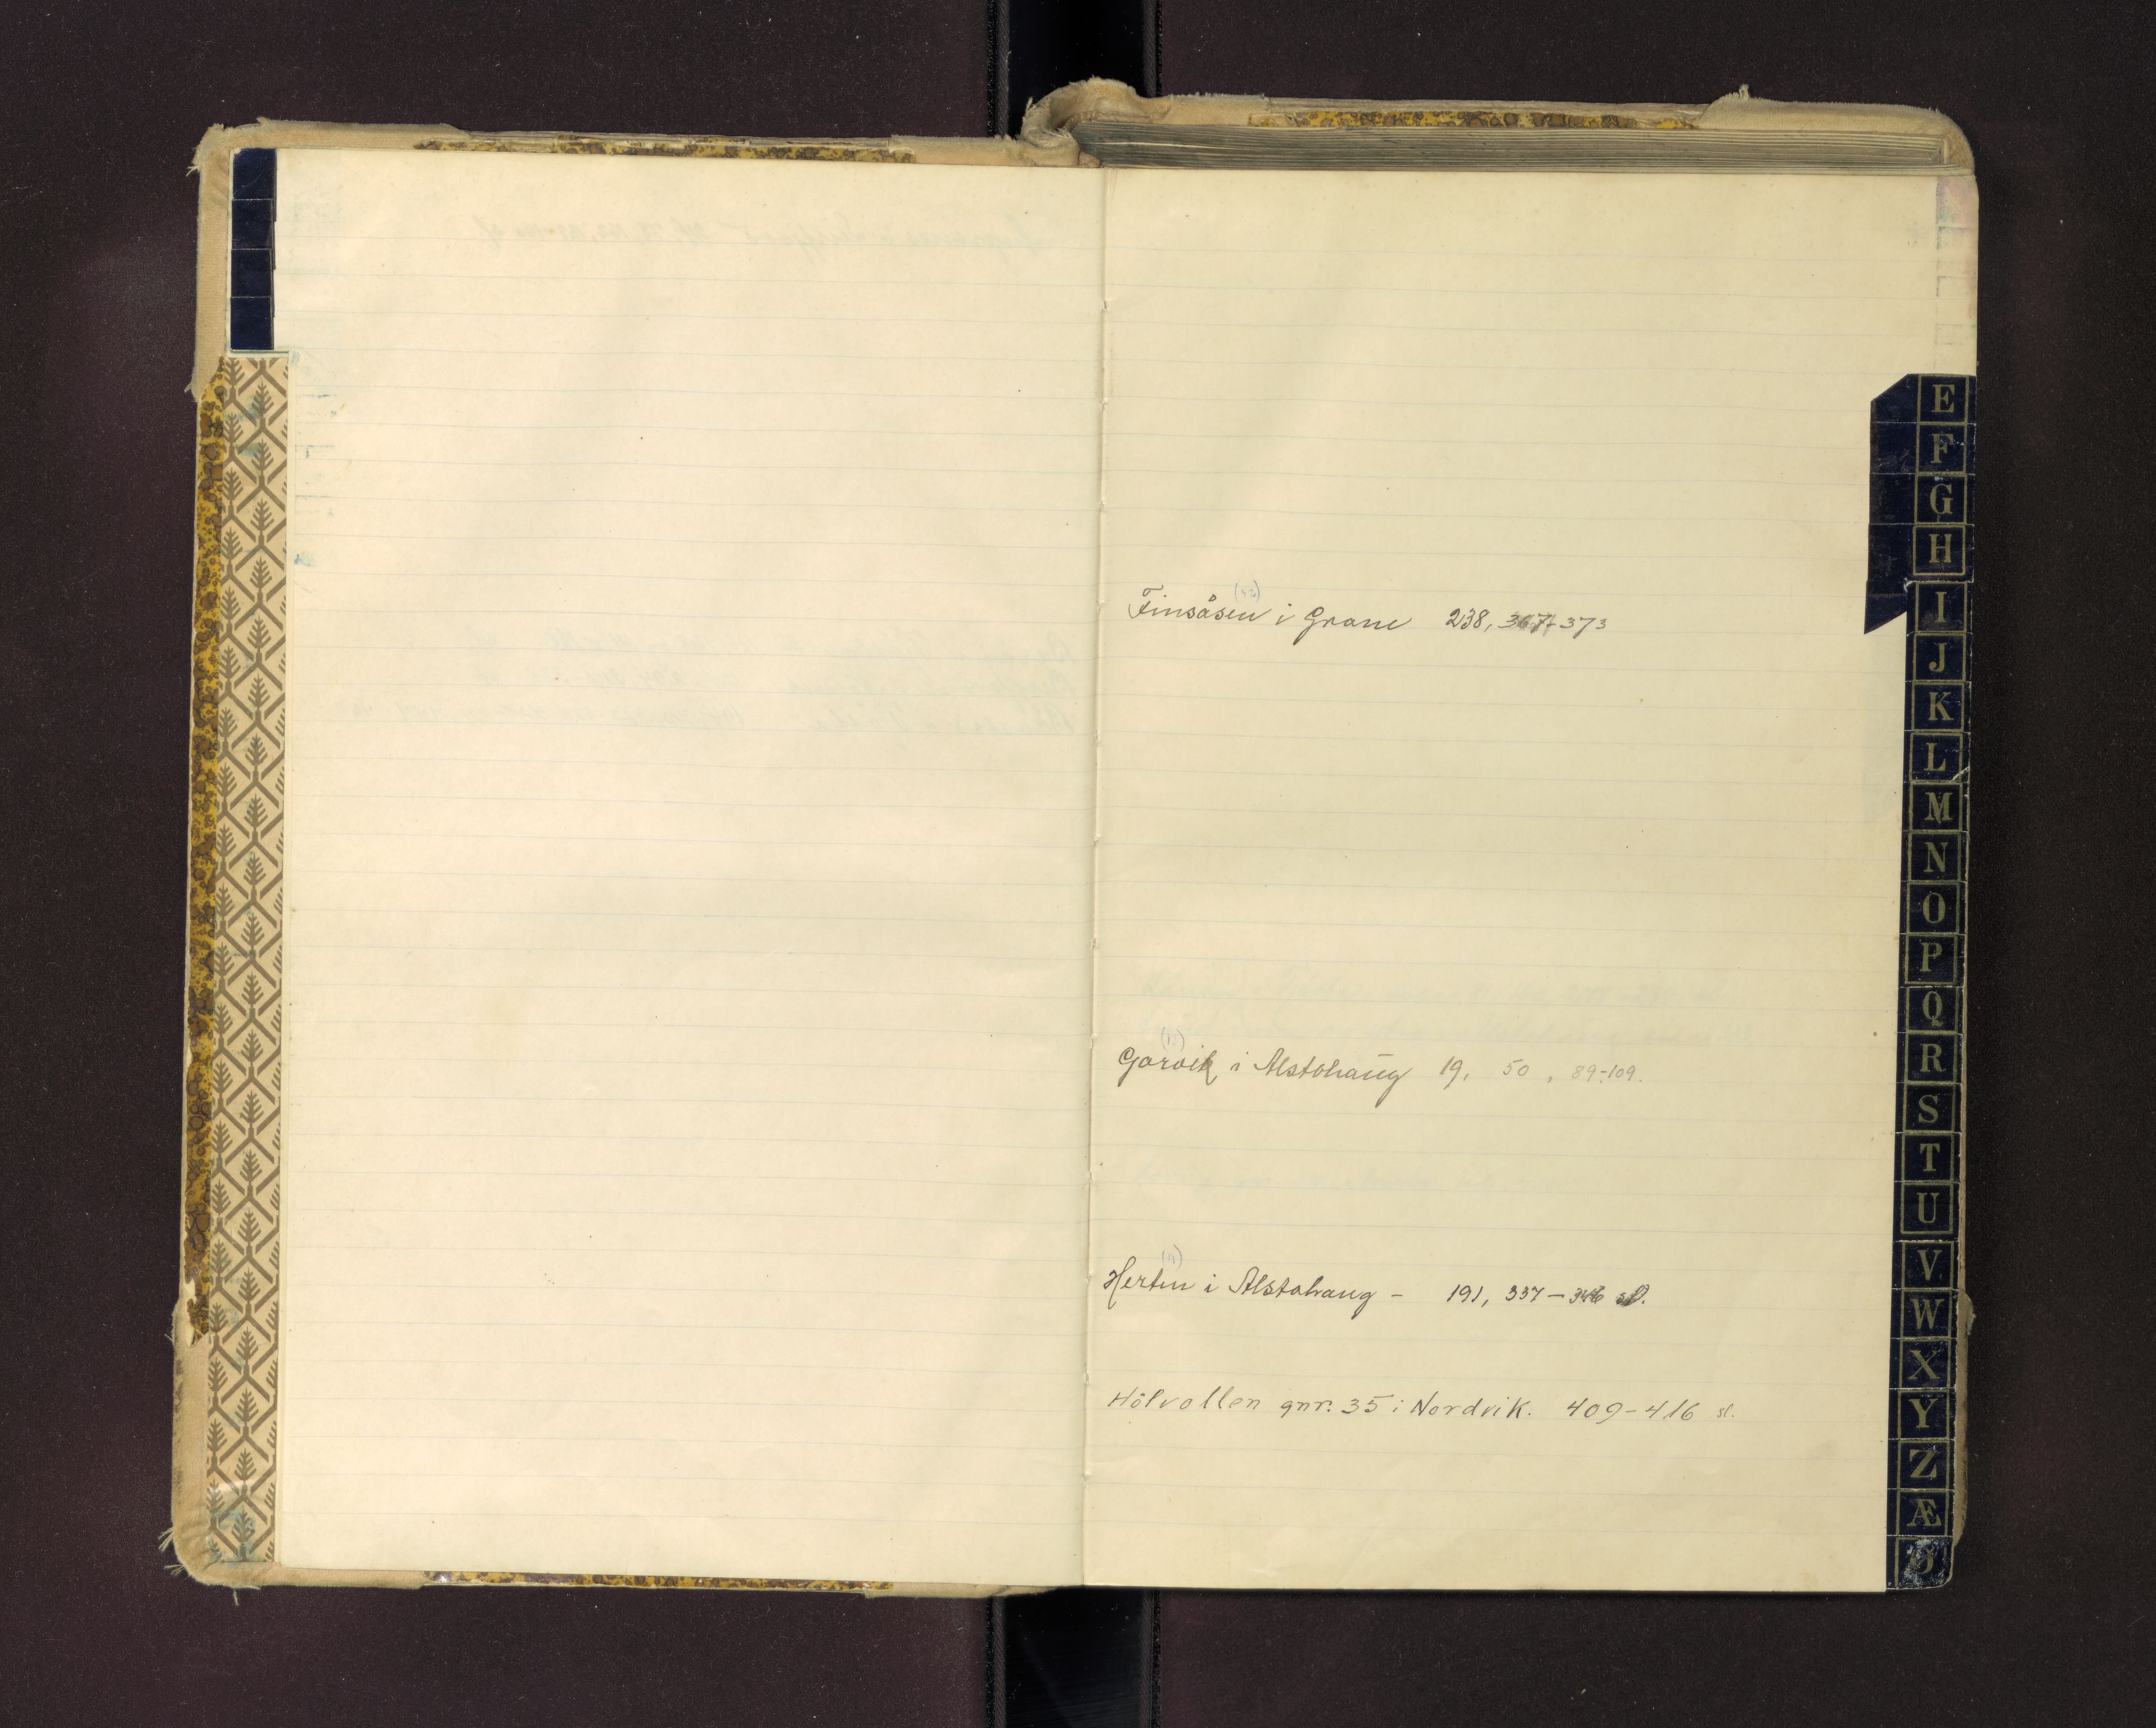 Finsåsen i Grane 238, 367-373
Garvik i Alstohaug 19, 50, 89-109.
Herten i Alstahaug - 191, 337-346 sl.
Hölvollen gnr. 35 i Nordvik. 409-416 sl.
E
F
G
H
I
J
K
L
M
N
O
P
Q
R
S
T
U
V
W
X
Y
Z
Æ
Ø